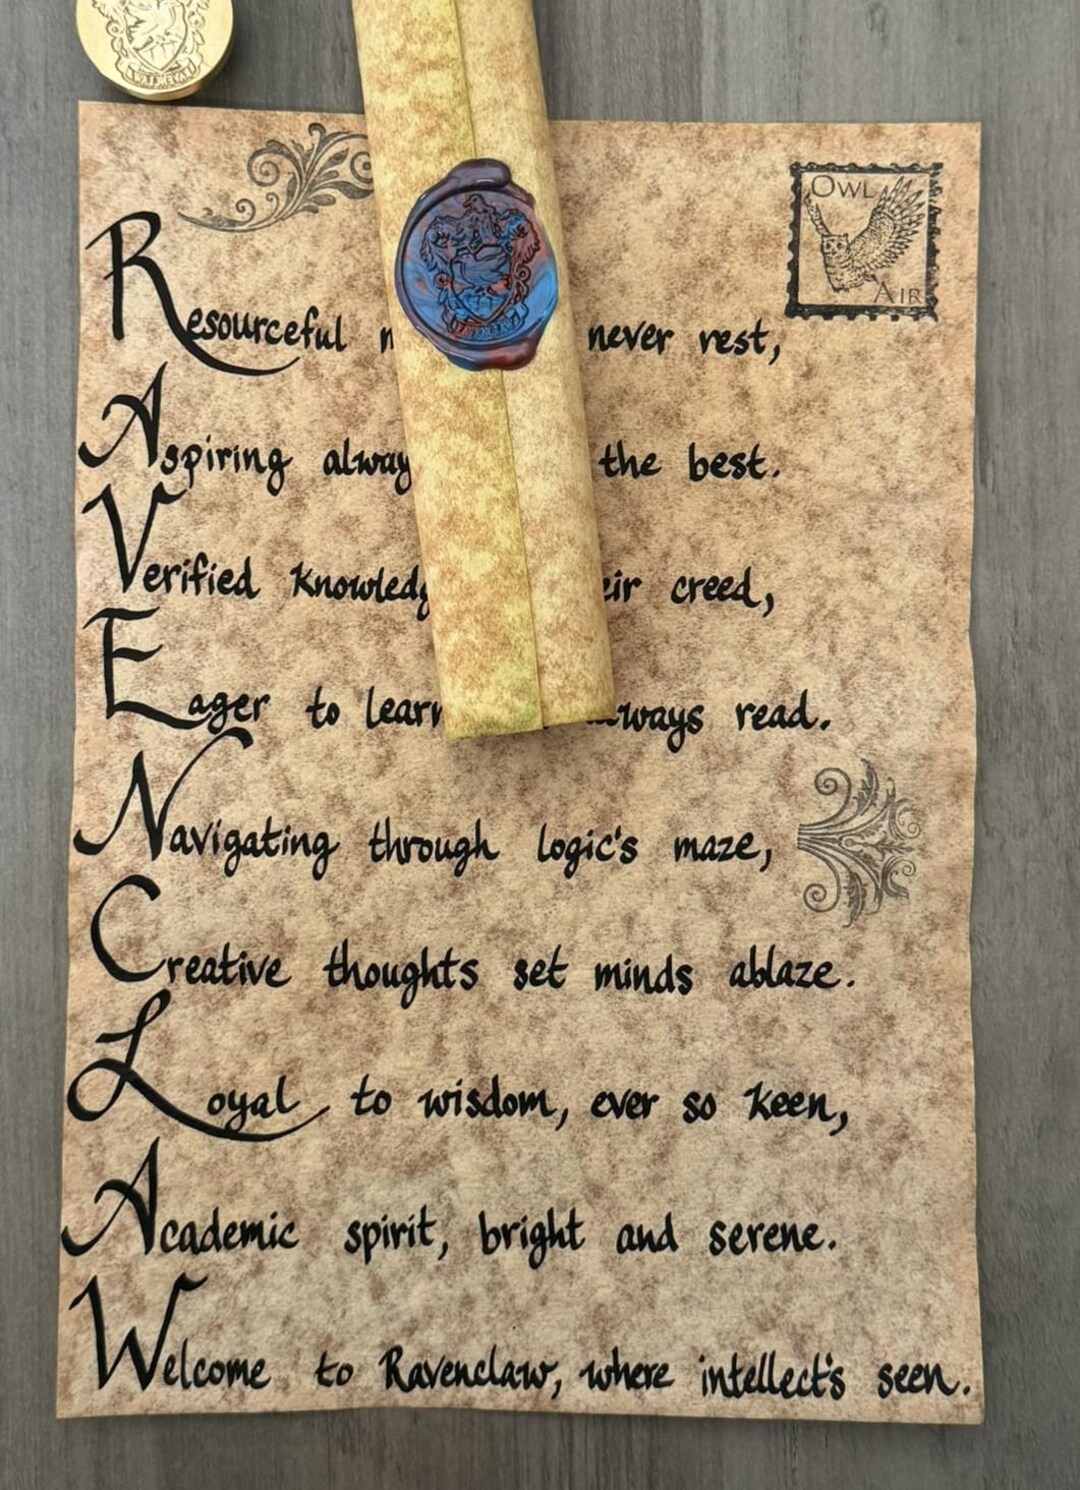 OWL
AIR
Resourceful never rest,
Aspiring the best.
Verified creed,
Eager to read.
Navigating through logic's maze,
Creative thoughts set minds ablaze.
Loyal to wisdom, ever so keen,
Academic spirit, bright and serene.
Welcome to Ravenclaw, where intellect's seen.